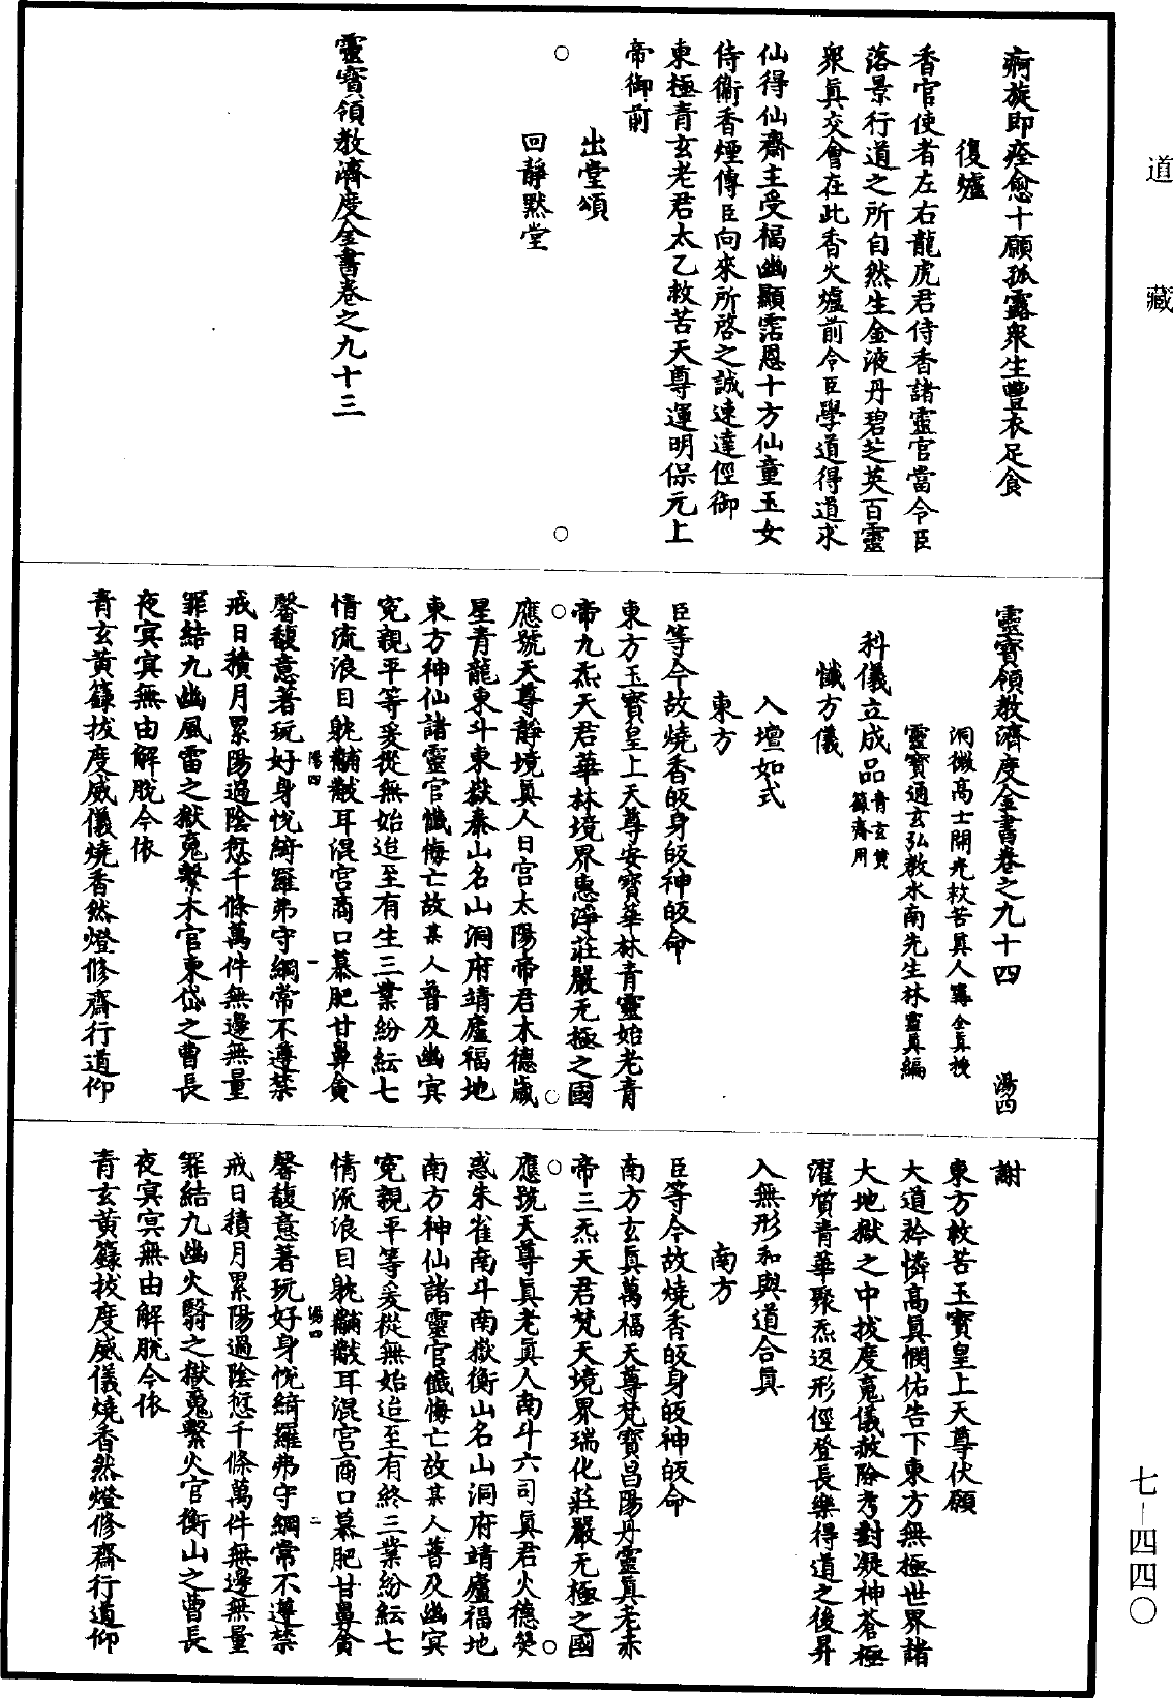 道藏
七—四四〇
痾旋即痊愈十願孤露衆生豐衣足食
復爐
香官使者左右龍虎君侍香諸靈官當令臣
落景行道之所自然生金液丹碧芝英百靈
衆眞交會在此香火爐前令臣學道得道求
仙得仙齋主受福幽顯霑恩十方仙童玉女
侍衛香煙傳臣向來所啓之誠速達徑御
東極青玄老君太乙救苦天尊運明保元上
帝御前
出堂頌
○回靜默堂○
靈寳領教濟度金書卷之九十三
靈寳領教濟度金書卷之九十四 湯四
洞微高士開光救苦眞人甯全眞授
靈寳通玄弘教水南先生林靈眞編
科儀立成品青玄黄籙齋用
懺方儀
入壇如式
東方
臣等今故燒香皈身皈神皈命
東方玉寳皇上天尊安寳華林青靈始老青
帝九炁天君華林境界惠淨莊嚴无極之國
○應號天尊靜境眞人日宫太陽帝君木德歲○
星青龍東斗東嶽泰山名山洞府靖廬福地
東方神仙諸靈官懺悔亡故某人普及幽冥
寃親平等爰從無始迨至有生三業紛紜七
情流浪目躭黼黻耳混宫商口慕肥甘鼻貪
湯四 一
馨馥意著玩好身悅綺羅弗守綱常不遵禁
戒日積月累陽過陰愆千條萬件無邊無量
罪結九幽風雷之獄䰟繫木官東岱之曹長
夜冥冥無由解脫今依
青玄黄籙拔度威儀燒香然燈修齋行道仰
謝
東方救苦玉寳皇上天尊伏願
大道矜憐高眞憫佑告下東方無極世界諸
大地獄之中拔度䰟儀赦除考對凝神蒼極
濯質青華聚炁返形徑登長樂得道之後昇
入無形和與道合眞
南方
臣等今故燒香皈身皈神皈命
南方玄眞萬福天尊梵寳昌陽丹靈眞老赤
帝三炁天君梵天境界瑞化莊嚴无極之國
○應號天尊眞老眞人南斗六司眞君火德熒○
惑朱雀南斗南嶽衡山名山洞府靖廬福地
南方神仙諸靈官懺悔亡故某人普及幽冥
寃親平等爰從無始迨至有終三業紛紜七
情流浪目躭黼黻耳混宫商口慕肥甘鼻貪
湯四 二
馨馥意著玩好身悅綺羅弗守綱常不遵禁
戒日積月累陽過陰愆千條萬件無邊無量
罪結九幽火翳之獄䰟繫火官衡山之曹長
夜冥冥無由解脫今依
青玄黄籙拔度威儀燒香然燈修齋行道仰